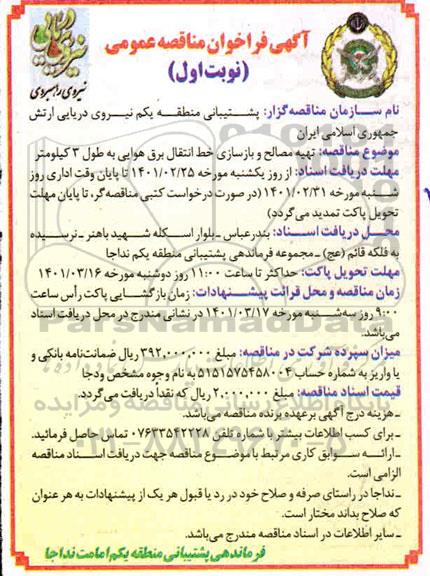 آگهی فراخوان مناقصه عمومی
(نوبت اول)
نیروی راهبردی
نام سازمان مناقصه‌گزار: پشتیبانی منطقه یکم نیروی دریایی ارتش
جمهوری اسلامی ایران
موضوع مناقصه: تهیه مصالح و بازسازی خط انتقال برق هوایی به طول ۳ کیلومتر
مهلت دریافت اسناد: از روز یکشنبه مورخه ۱۴۰۱/۰۲/۲۵ تا پایان وقت اداری روز
شنبه مورخه ۱۴۰۱/۰۲/۳۱ (در صورت درخواست کتبی مناقصه‌گر، تا پایان مهلت
تحویل پاکت تمدید می‌گردد)
محل دریافت اسناد: بندرعباس ـ بلوار اسکله شهید باهنر ـ نرسیده
به فلکه قائم (عج) ـ مجموعه فرماندهی پشتیبانی منطقه یکم نداجا
مهلت تحویل پاکت: حداکثر تا ساعت ۱۱:۰۰ روز دوشنبه مورخه ۱۴۰۱/۰۳/۱۶
زمان مناقصه و محل قرائت پیشنهادات: زمان بازگشایی پاکت رأس ساعت
۹:۰۰ روز سه‌شنبه مورخه ۱۴۰۱/۰۳/۱۷ در نشانی مندرج در محل دریافت اسناد
می‌باشد.
میزان سپرده شرکت در مناقصه: مبلغ ۳۹۲,۰۰۰,۰۰۰ ریال ضمانت‌نامه بانکی و
یا واریز به شماره حساب ۵۱۵۱۵۷۵۴۵۸۰۰۴ به نام وجوه مشخص ودجا
قیمت اسناد مناقصه: مبلغ ۲,۰۰۰,۰۰۰ ریال که نقداً دریافت می‌گردد.
ـ هزینه درج آگهی برعهده برنده مناقصه می‌باشد.
ـ برای کسب اطلاعات بیشتر با شماره تلفن ۰۷۶۳۳۵۴۲۲۲۸ تماس حاصل فرمائید.
ـ ارائه سوابق کاری مرتبط با موضوع مناقصه جهت دریافت اسناد مناقصه
الزامی است.
ـ نداجا در راستای صرفه و صلاح خود در رد یا قبول هر یک از پیشنهادات به هر عنوان
که صلاح بداند مختار است.
ـ سایر اطلاعات در اسناد مناقصه مندرج می‌باشد.
فرماندهی پشتیبانی منطقه یکم امامت نداجا